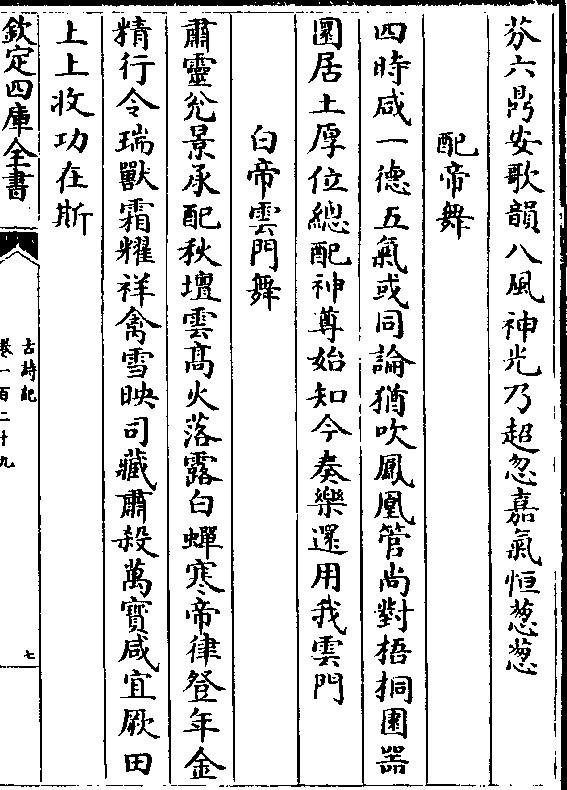 芬六鼎安歌韻八風神光乃超忽嘉氣恒葱葱
配帝舞
四時咸一德五氣或同論猶吹鳳凰管尚對梧桐園器
圜居土厚位總配神尊始知今奏樂還用我雲門
白帝雲門舞
肅靈兊景承配秋壇雲髙火落露白蟬寒帝律登年金
精行令瑞獸霜耀祥禽雪映司藏肅殺萬寳咸宜厥田
上上收功在斯
欽定四庫全書
古詩紀
卷一百二十九
七